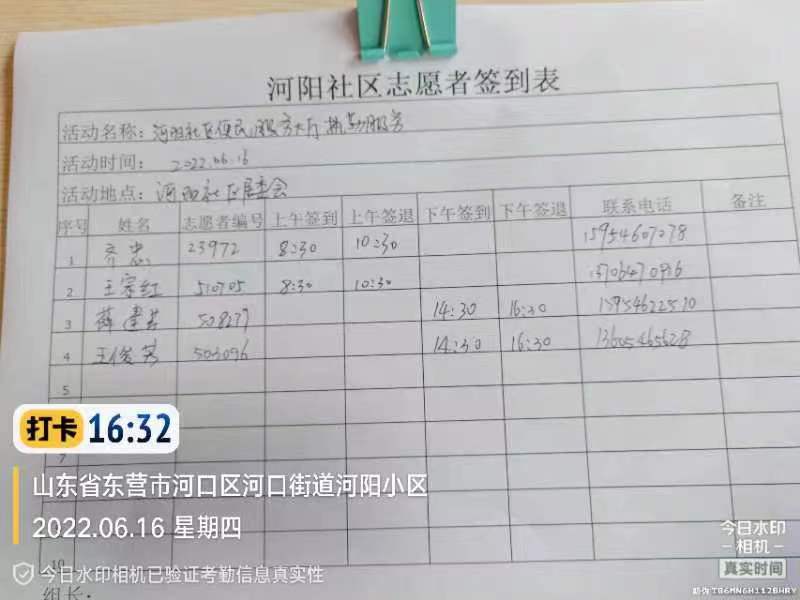 河阳社区志愿者签到表
活动名称：河阳社区便民服务大厅执勤服务
活动时间： 2022.06.16
活动地点：河阳社区居委会
序号 姓名 志愿者编号 上午签到 上午签退 下午签到 下午签退 联系电话 备注
1 齐忠 23972 8:30 10:30 15954607078
2 王宗红 510705 8:30 10:30
3 薛建芳 14:30 16:30
4 王俊芳 503096 14:30 16:30
5
打卡 16:32
7
山东省东营市河口区河口街道河阳小区
2022.06.16 星期四
今日水印
-相机-
真实时间
10
今日水印相机已验证考勤信息真实性
防伪 TB6MNGH112BHRY
组长：